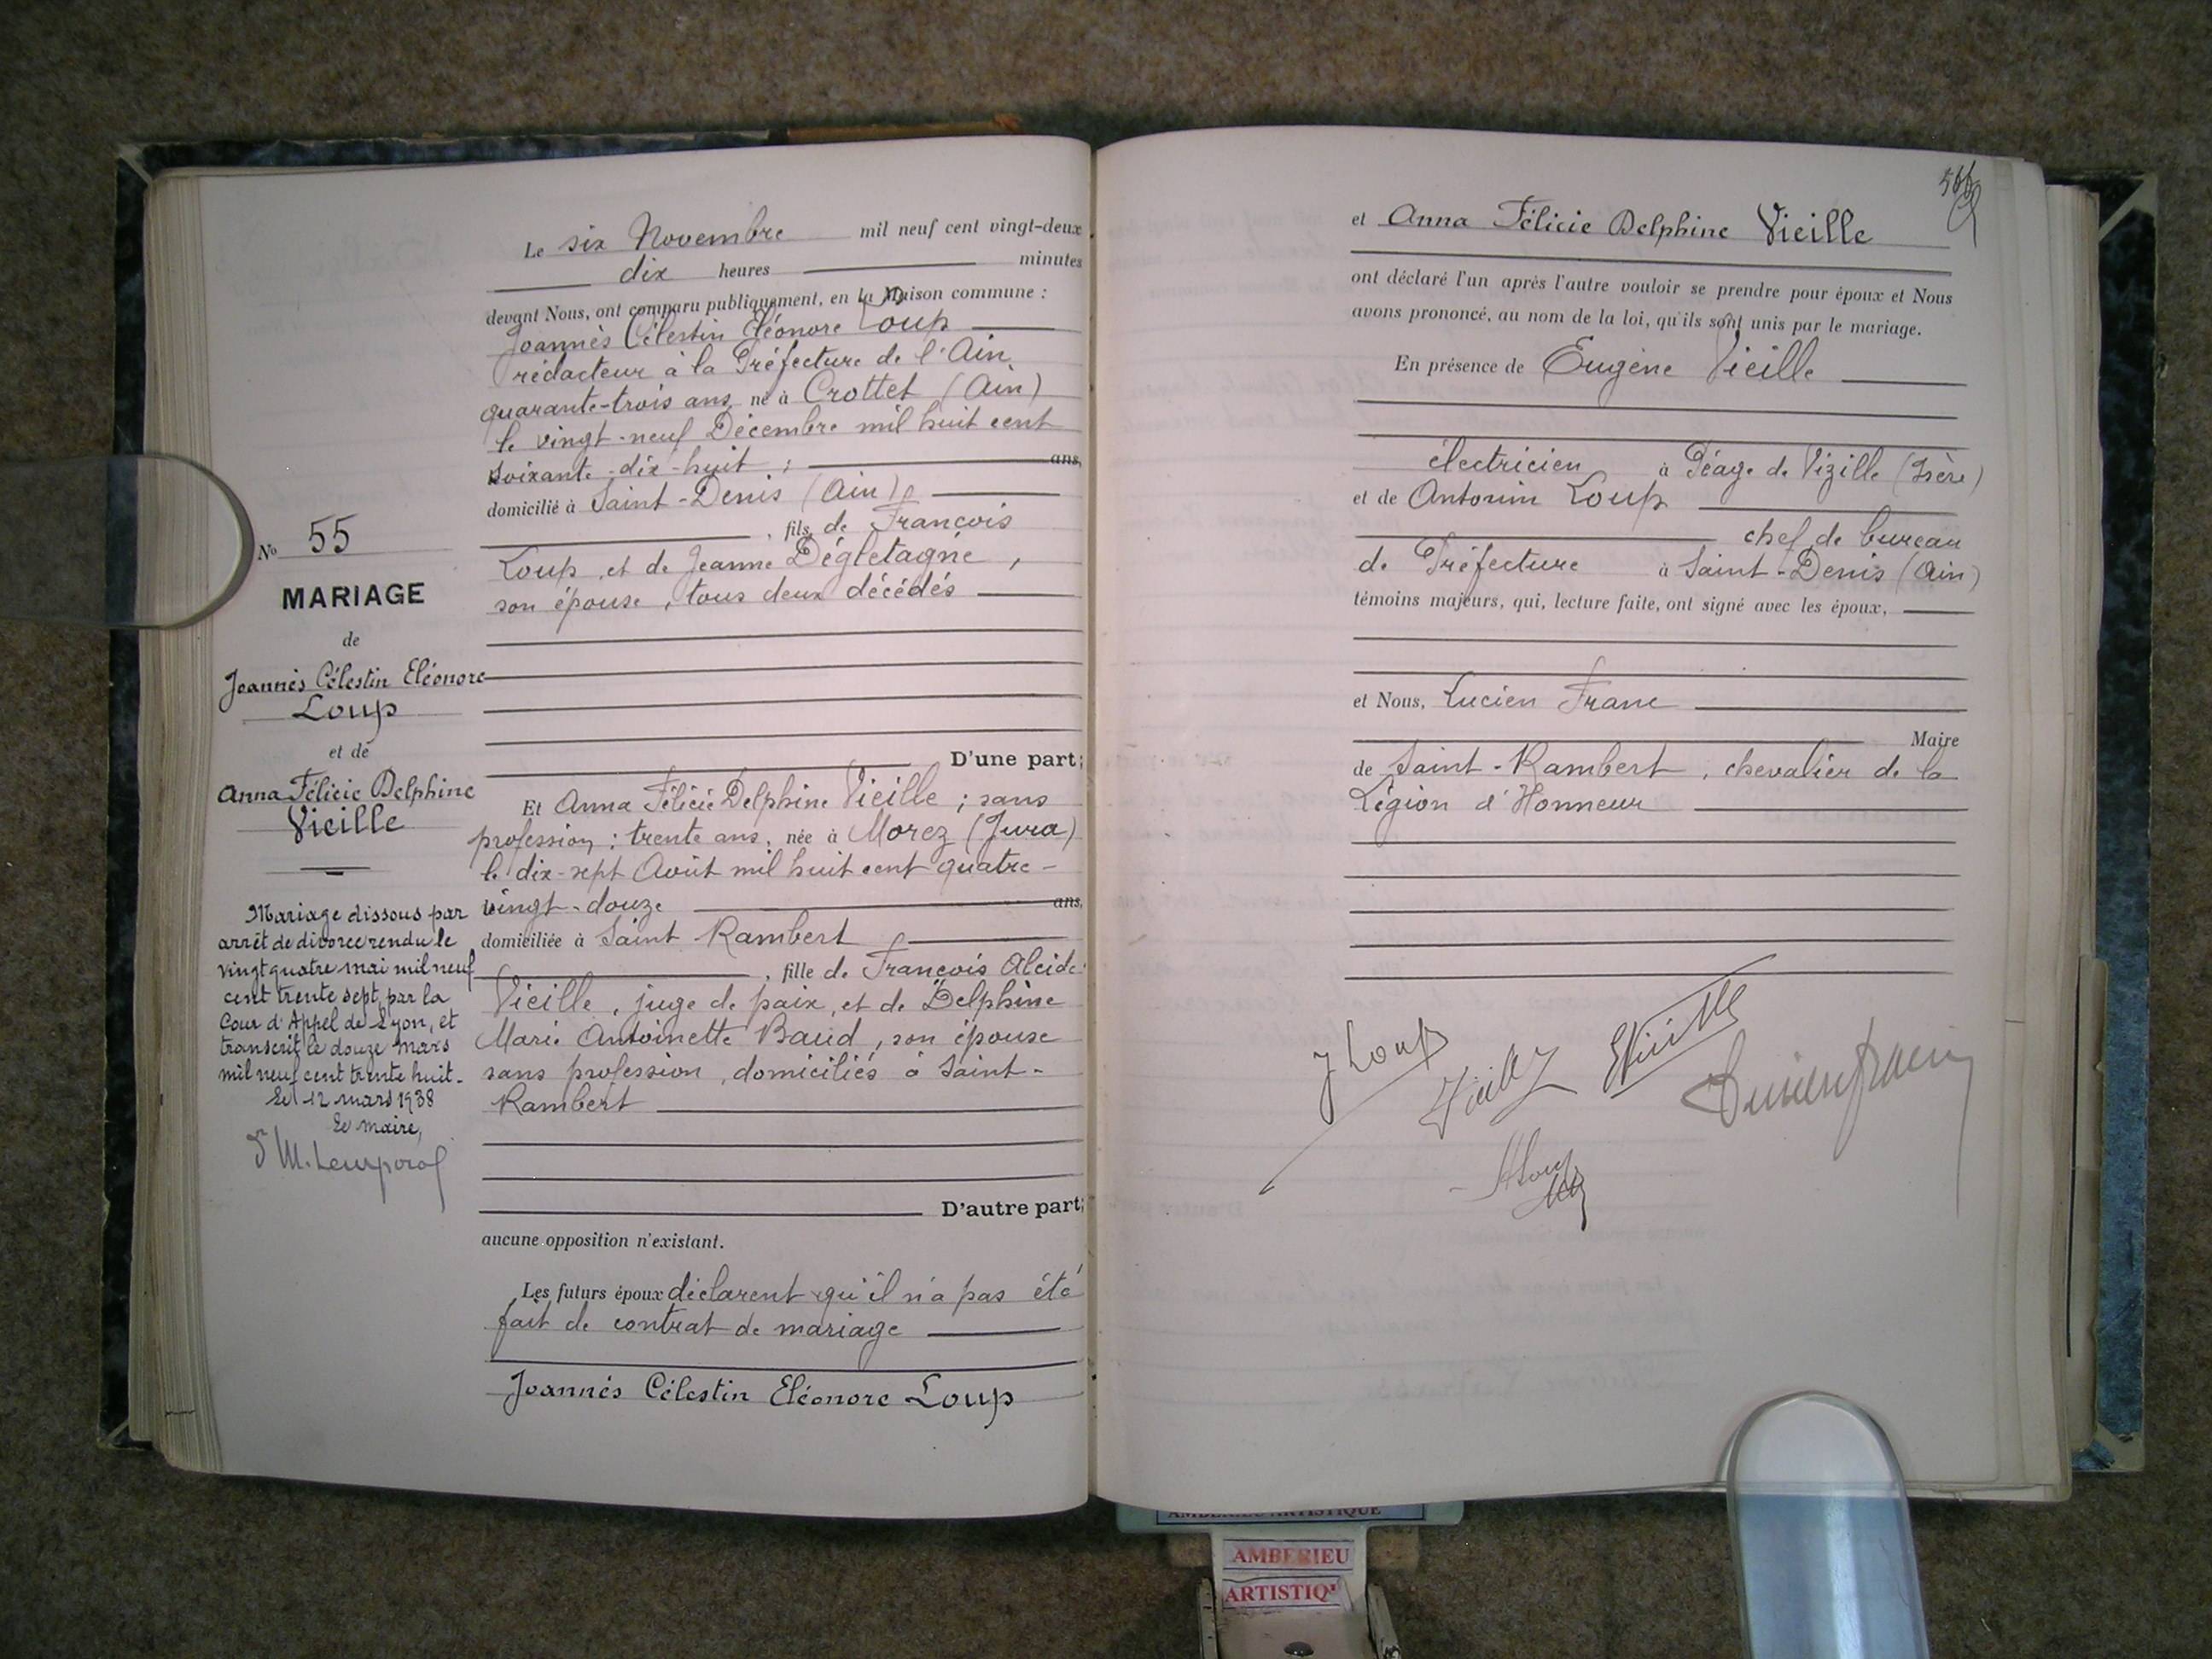 N° 55
MARIAGE
de
Joannès Célestin Eléonore
Loup
et de
Anna Félicie Delphine
Vieille
Mariage dissous par
arrêt de divorce rendu le
vingt quatre mai mil neuf
cent trente sept, par la
Cour d'Appel de Lyon, et
transcrit le douze mars
mil neuf cent trente huit.
Le 12 mars 1938
Le maire,
Le six Novembre mil neuf cent vingt-deux
dix heures minutes
devant Nous, ont comparu publiquement, en la Maison commune :
Joannès Célestin Eléonore Loup
rédacteur à la Préfecture de l'Ain
quarante-trois ans, né à Crottet (Ain)
le vingt-neuf Décembre mil huit cent
soixante-dix-huit ; ans,
domicilié à Saint-Denis (Ain)
, fils de François
Loup, et de Jeanne Dégletagne,
son épouse, tous deux décédés
D'une part;
Et Anna Félicie Delphine Vieille ; sans
profession ; trente ans, née à Morez (Jura)
le dix-sept Août mil huit cent quatre-
vingt-douze ans,
domiciliée à Saint-Rambert
, fille de François Alcide
Vieille, juge de paix, et de Delphine
Marie Antoinette Baud, son épouse
sans profession, domiciliés à Saint-
Rambert
D'autre part;
aucune opposition n'existant.
Les futurs époux déclarent qu'il n'a pas été
fait de contrat de mariage
Joannès Célestin Eléonore Loup
et Anna Félicie Delphine Vieille
ont déclaré l'un après l'autre vouloir se prendre pour époux et Nous
avons prononcé, au nom de la loi, qu'ils sont unis par le mariage.
En présence de Eugène Vieille
électricien à Péage de Vizille (Isère)
et de Antonin Loup
chef de bureau
de Préfecture à Saint-Denis (Ain)
témoins majeurs, qui, lecture faite, ont signé avec les époux,
et Nous, Lucien Franc
Maire
de Saint-Rambert, chevalier de la
Légion d'Honneur
J Loup
Vieille
EVieille
Lucien Franc
ALoup
AMBERIEU ARTISTIQUE
AMBERIEU
ARTISTIQ